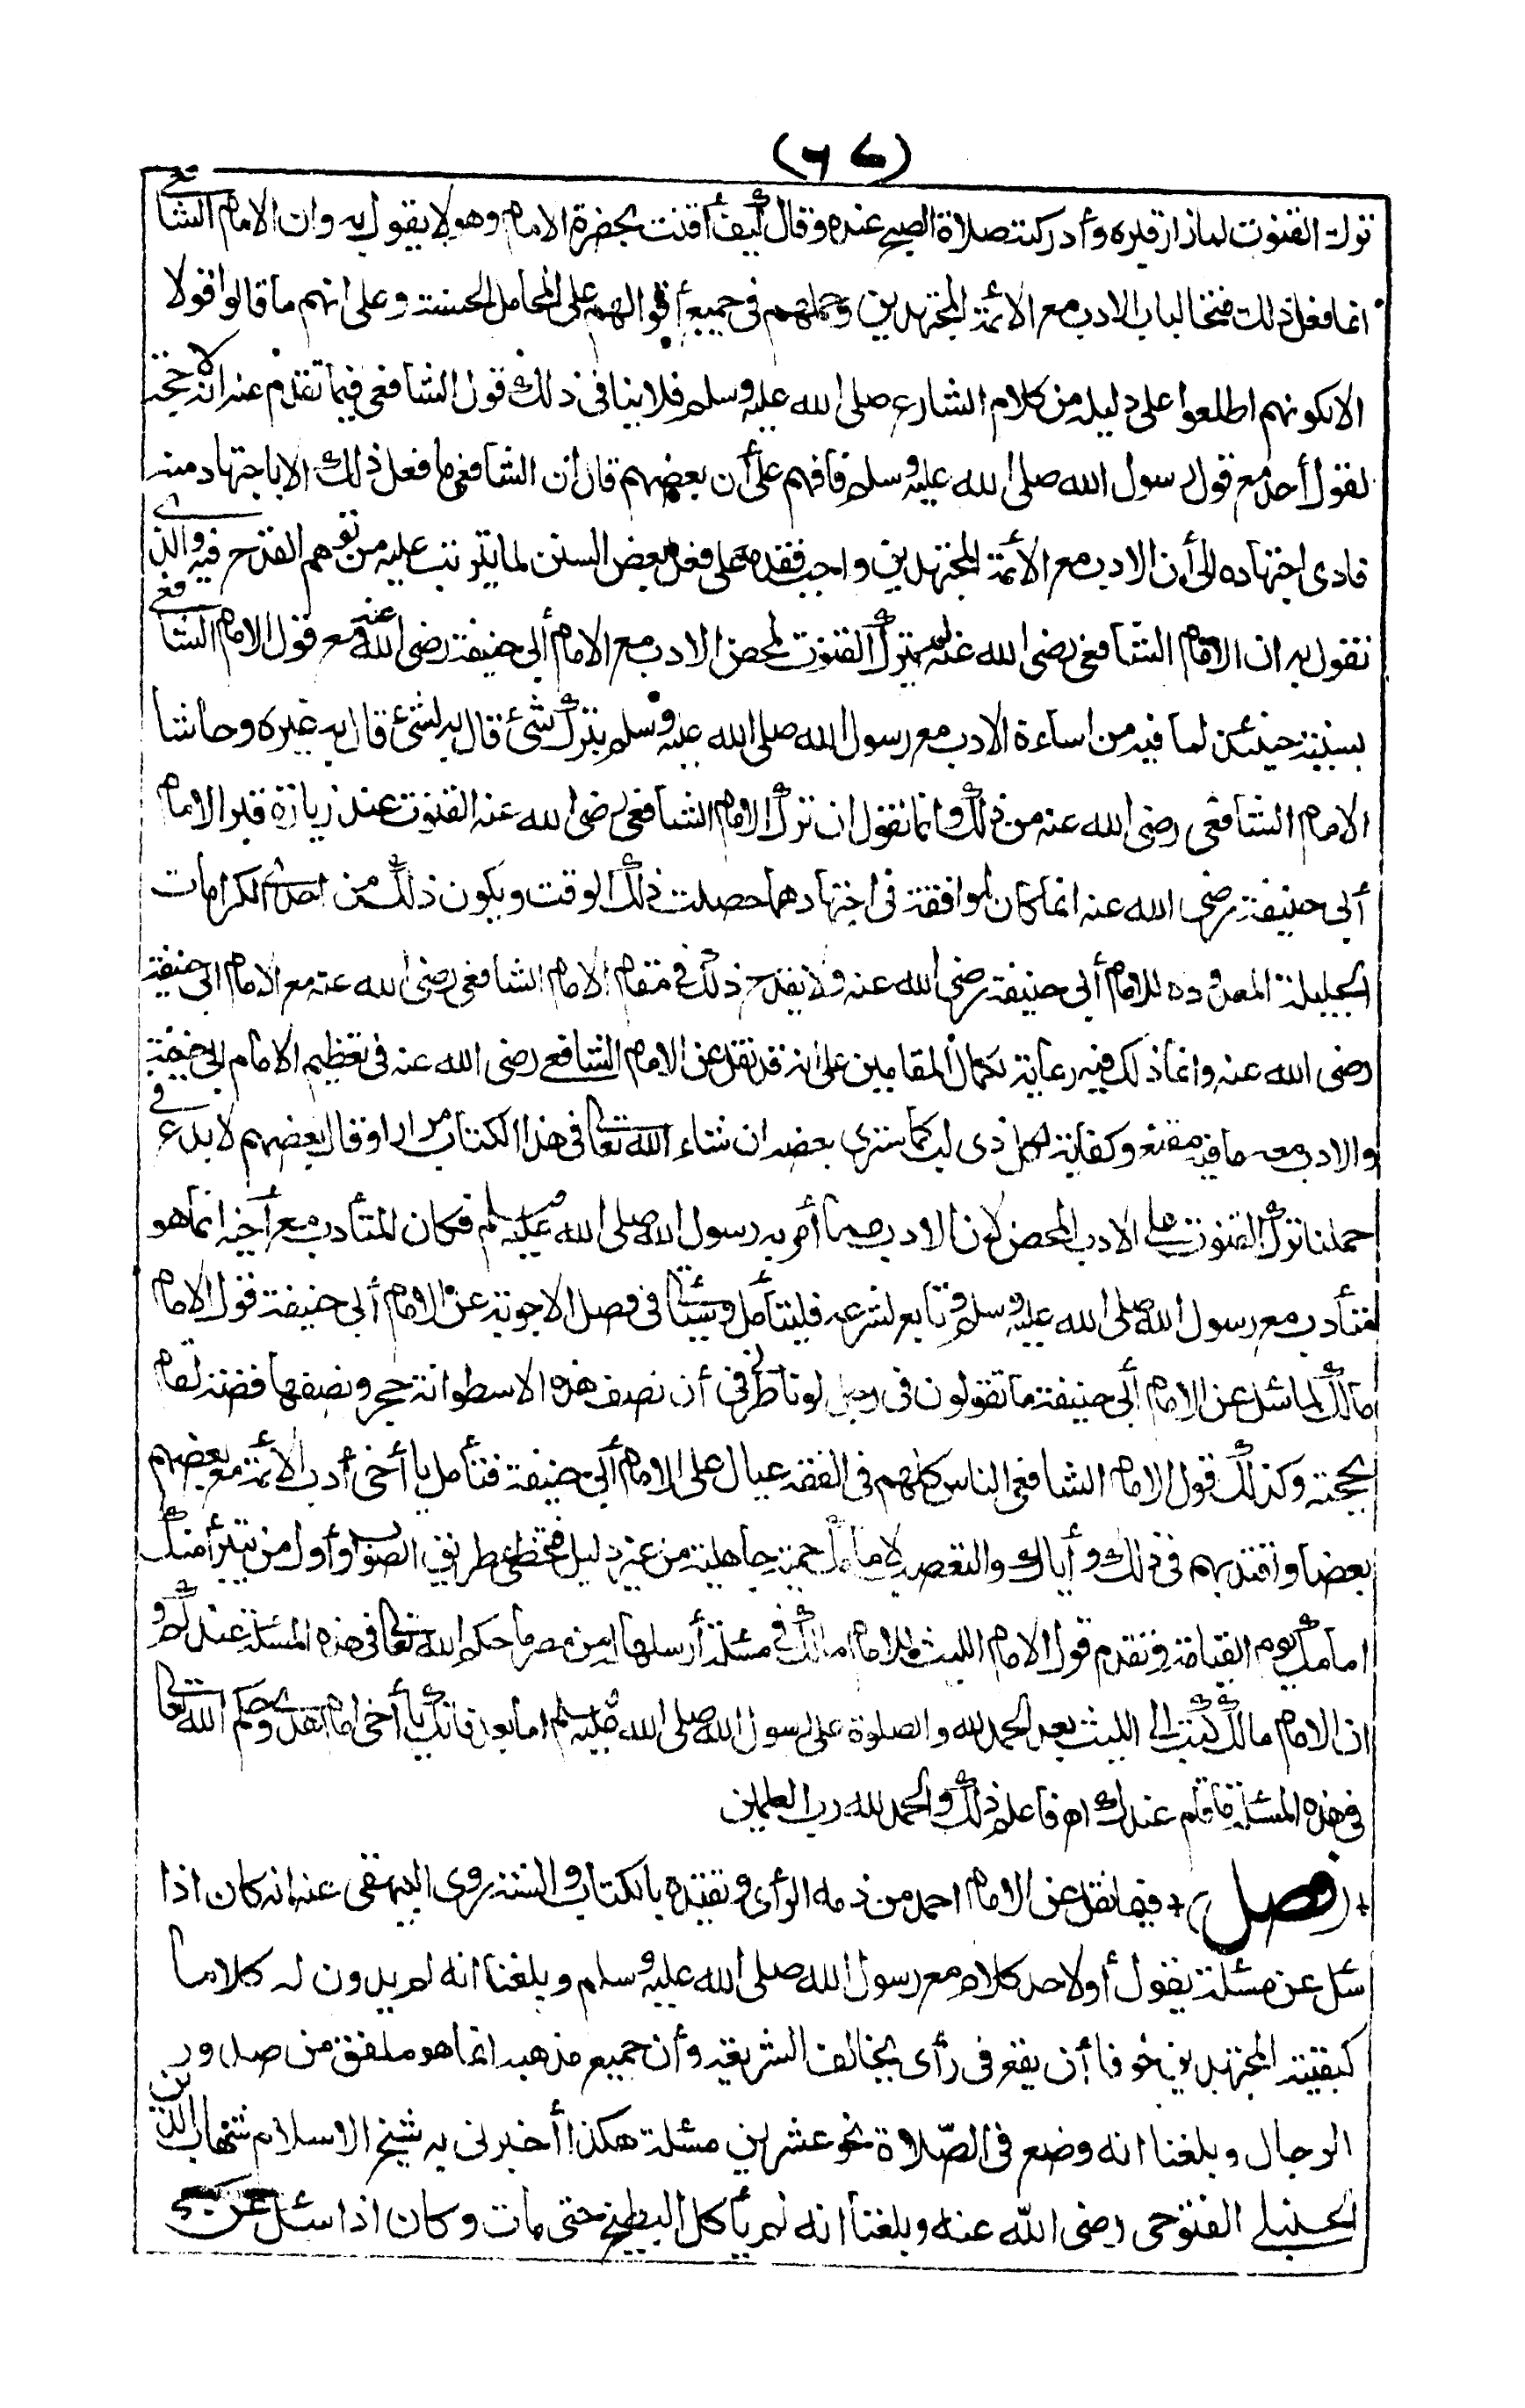 (٦٤)
ترك القنوت لما زار قبره وأدركته صلاة الصبح عنده وقال كيف أقنت بحضرة الامام وهو لا يقول به وان الامام الشافعي
انما فعل ذلك فتحا لباب الادب مع الأئمة المجتهدين وحملهم في جميع أقوالهم على المحامل الحسنة وعلى انهم ما قالوا قولا
الا بكونهم اطلعوا على دليله من كلام الشارع صلى الله عليه وسلم فلا ينافى ذلك قول الشافعي فيما تقدم عنه انه لا حجة
لقول أحد مع قول رسول الله صلى الله عليه وسلم فافهم على أن بعضهم قال ان الشافعي ما فعل ذلك الا باجتهاد منه
فادى اجتهاده الى أن الادب مع الأئمة المجتهدين واجب فقدمه على فعل بعض السنن لما يترتب عليه من توهم القدح فيه والذى
نقول به ان الامام الشافعي رضى الله عنه لم يترك القنوت لمحض الادب مع الامام أبى حنيفة رضى الله عنه مع قول الامام الشافعي
بسنيته حينئذ لما فيه من اساءة الادب مع رسول الله صلى الله عليه وسلم بترك شئ قال به لشئ قال به غيره وحاشا
الامام الشافعي رضى الله عنه من ذلك وانما نقول ان ترك الامام الشافعي رضى الله عنه القنوت عند زيارة قبر الامام
أبى حنيفة رضى الله عنه انما كان لموافقة في اجتهادهما حصلت ذلك الوقت ويكون ذلك من احدى الكرامات
الجليلة المعدودة للامام أبى حنيفة رضى الله عنه ولا يقدح ذلك في مقام الامام الشافعي رضى الله عنه مع الامام ابى حنيفة
رضى الله عنه وانما ذلك فيه رعاية لكمال المقامين على انه قد نقل عن الامام الشافعي رضى الله عنه فى تعظيم الامام ابى حنيفة
والادب معه ما فيه مقنع وكفاية لكل ذى لب كما سترى بعضه ان شاء الله تعالى فى هذا الكتاب مرارا وقال بعضهم لا بدع في
حملنا ترك القنوت على الادب المحض لان الادب مما أمر به رسول الله صلى الله عليه وسلم فكان المتأدب مع أخيه انما هو
متأدب مع رسول الله صلى الله عليه وسلم وتابع لشرعه فليتأمل وسيأتى فى فصل الاجوبة عن الامام أبى حنيفة قول الامام
مالك لما سئل عن الامام أبى حنيفة ما تقولون فى رجل لو ناظرنى فى أن نصف هذه الاسطوانة حجر ونصفها فضة لقام
بحجته وكذلك قول الامام الشافعي الناس كلهم فى الفقه عيال على الامام أبى حنيفة فتأمل يا أخى أدب الأئمة مع بعضهم
بعضا واقتد بهم فى ذلك وأياك والتعصب لامامك حمية جاهلية من غير دليل فتخطئ طريق الصواب وأول من يتبرأ منك
امامك يوم القيامة وتقدم قول الامام الليث للامام مالك فى مسئلة أرسلها له من مصر ما حكم الله تعالى فى هذه المسئلة عندكم و
ان الامام مالك كتب الى الليث بعد الحمد لله والصلوة على رسول الله صلى الله عليه وسلم اما بعد فانك يا أخى امام هدى وحكم الله تعالى
فى هذه المسئلة ما قام عندك اه فاعلم ذلك والحمد لله رب العلمين
(فصل) فيما نقل عن الامام احمد من ذمه الرأى وتقيده بالكتاب والسنة روى البيهقى عنه انه كان اذا
سئل عن مسئلة يقول أو لاحد كلام مع رسول الله صلى الله عليه وسلم وبلغنا انه لم يدون له كلاما
كبقية المجتهدين خوفا أن يقع فى رأى يخالف الشريعة وأن جميع مذهبه انما هو ملفق من صدور
الرجال وبلغنا انه وضع فى الصّلاة نحو عشرين مسئلة هكذا أخبرنى به شيخ الاسلام شهاب الدين
الحنبلى الفتوحى رضى الله عنه وبلغنا انه لم يأكل البطيخ حتى مات وكان اذا سئل عن